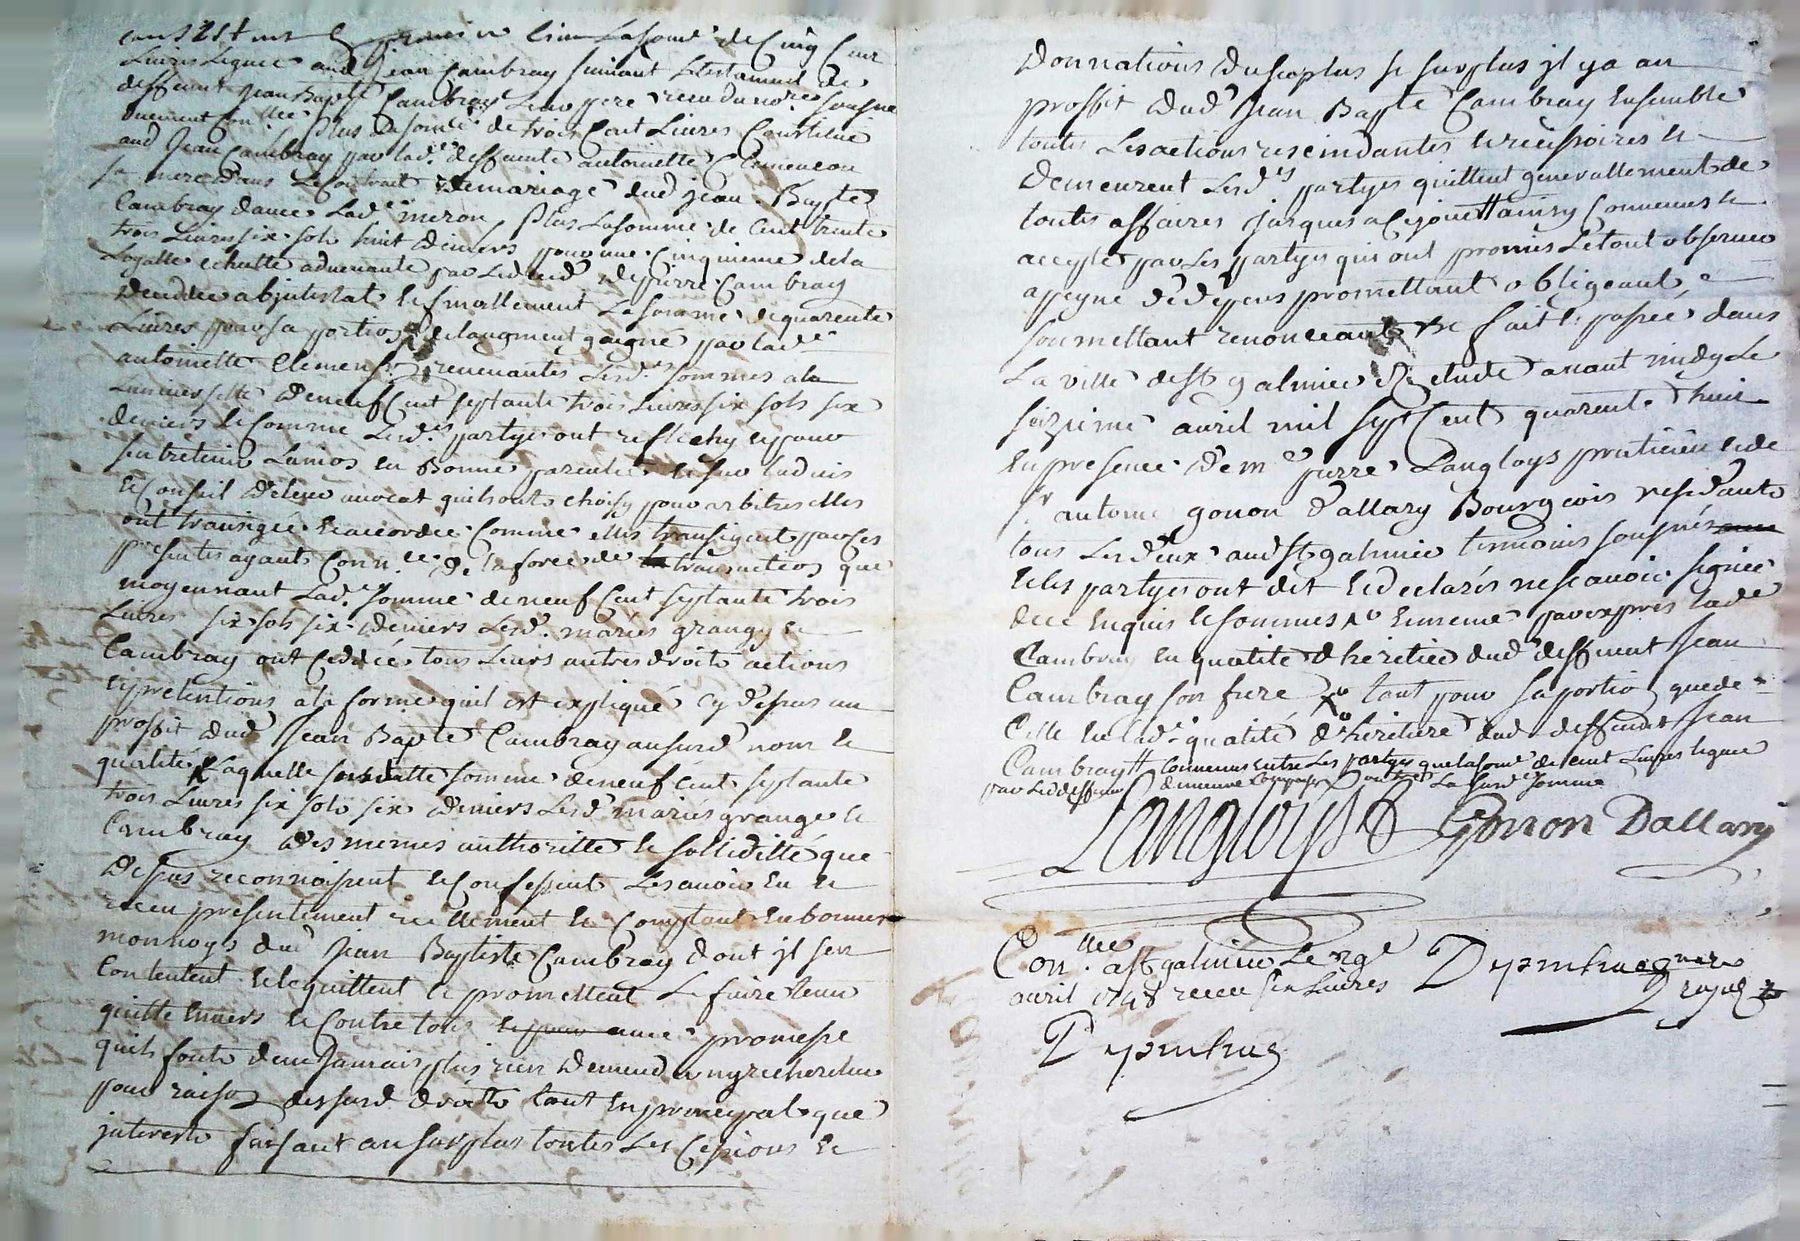 en premier lieu La some de Cinq Cent
Livres Leguée aud. Jean Cambray suivant Letestament de
deffunt Jean Bapte Cambray Leur pere receu du no.re sousne
duement Con.llée plus La some de trois Cent Livres Constituée
aud Jean Cambray par lad. deffunte antoinette Clemencon
sa mere dans Le Contrait de mariage dud jean Bapte
Cambray avec Lad.e meron, Plus La somme de Cent trente
trois Livres six sols huit deniers pour une Cinquieme dela
Legatte echutte advenante par Led. de pierre Cambray
decedée abjntestat et finallement La somme de quarente
Livres pour sa portion delaugment gaigné par lad.e
antoinette Clemenson revenantes Lesd.es sommes ala
universelle de neuf Cent septante trois Livres six sols six
deniers et Comme Lesd. partyes ont reflechy et pour
sentretenir Lamos en Bonne parentée et sur Ladvis
et Conseil deleur avocat quils ont choisy pour arbitres elles
ont transigée et accordée Comme elles transigent par ces
presentes ayants Conn.ce de la force de transaction que
moyennant Lad.e somme de neuf Cent septante trois
Livres six sols six deniers Lesd. mariés grange et
Cambray ont Ceddée tous Leurs autres droits actions
et pretentions ala forme quil est expliqué Cy dessus au
proffit dud Jean Bapte Cambray ausurd nom et
qualité Laquelle susditte somme de neuf Cent septante
trois Livres six sols six deniers Lesd mariés grange et
Cambray des memes authoritte et solliditté que
dessus reconnoissent et Confessent Les avoir Eu et
receu presentement reellement et Comptant en bonnes
monnoys dud Jean Baptiste Cambray dont jl sen
Contentent et lequittent et promettent Le faire tenir
quitte Envers et Contre tous avec promesse
quils font de ne Jamais plus rien demender ny rechercher
pour raison desurd droits tant en principal que
jnterests faisant au surplus toutes Les Cessions et
Donnations du seoplus et surplus jl y a au
proffit dud Jean Bapte Cambray Ensemble
toutes Les actions rescindantes et recissoires et
demeurent Lesd.es partyes quittent generallement de
toutes affaires jusques aCejourd'huy ainsy Convenues et
accepté par Les partyes qui ont promis Letout observer
a peyne de depens promettant obligeant &
soumettant renonceant &c fait et passé dans
La ville de st galmier Etude avant midy Le
seizieme avril mil sept Cent quarente huit
En presence de m.e pierre Langloys praticien et de
s.r antoine gonon d'allary Bourgeois residants
tous Les deux aud st galmier temoins sousnés
et les partyes ont dit et declarés ne scavoir signer
dece enquis et sommés Et Enmeme par exprès lad.e
Cambray en qualité d heretiere dud deffunt Jean
Cambray son frere tant pour sa portion quede
Celle en lad.e qualité d'heritiere dud deffunt Jean
Cambray Convenus entre Les partyes que la some de cent Livres leguée
par Led deffunt demeure Comprise La Susd.e somme
Langloys Gonon Dallary
Con.llée a st galmier Le 29e
avril 1748 receu six Livres